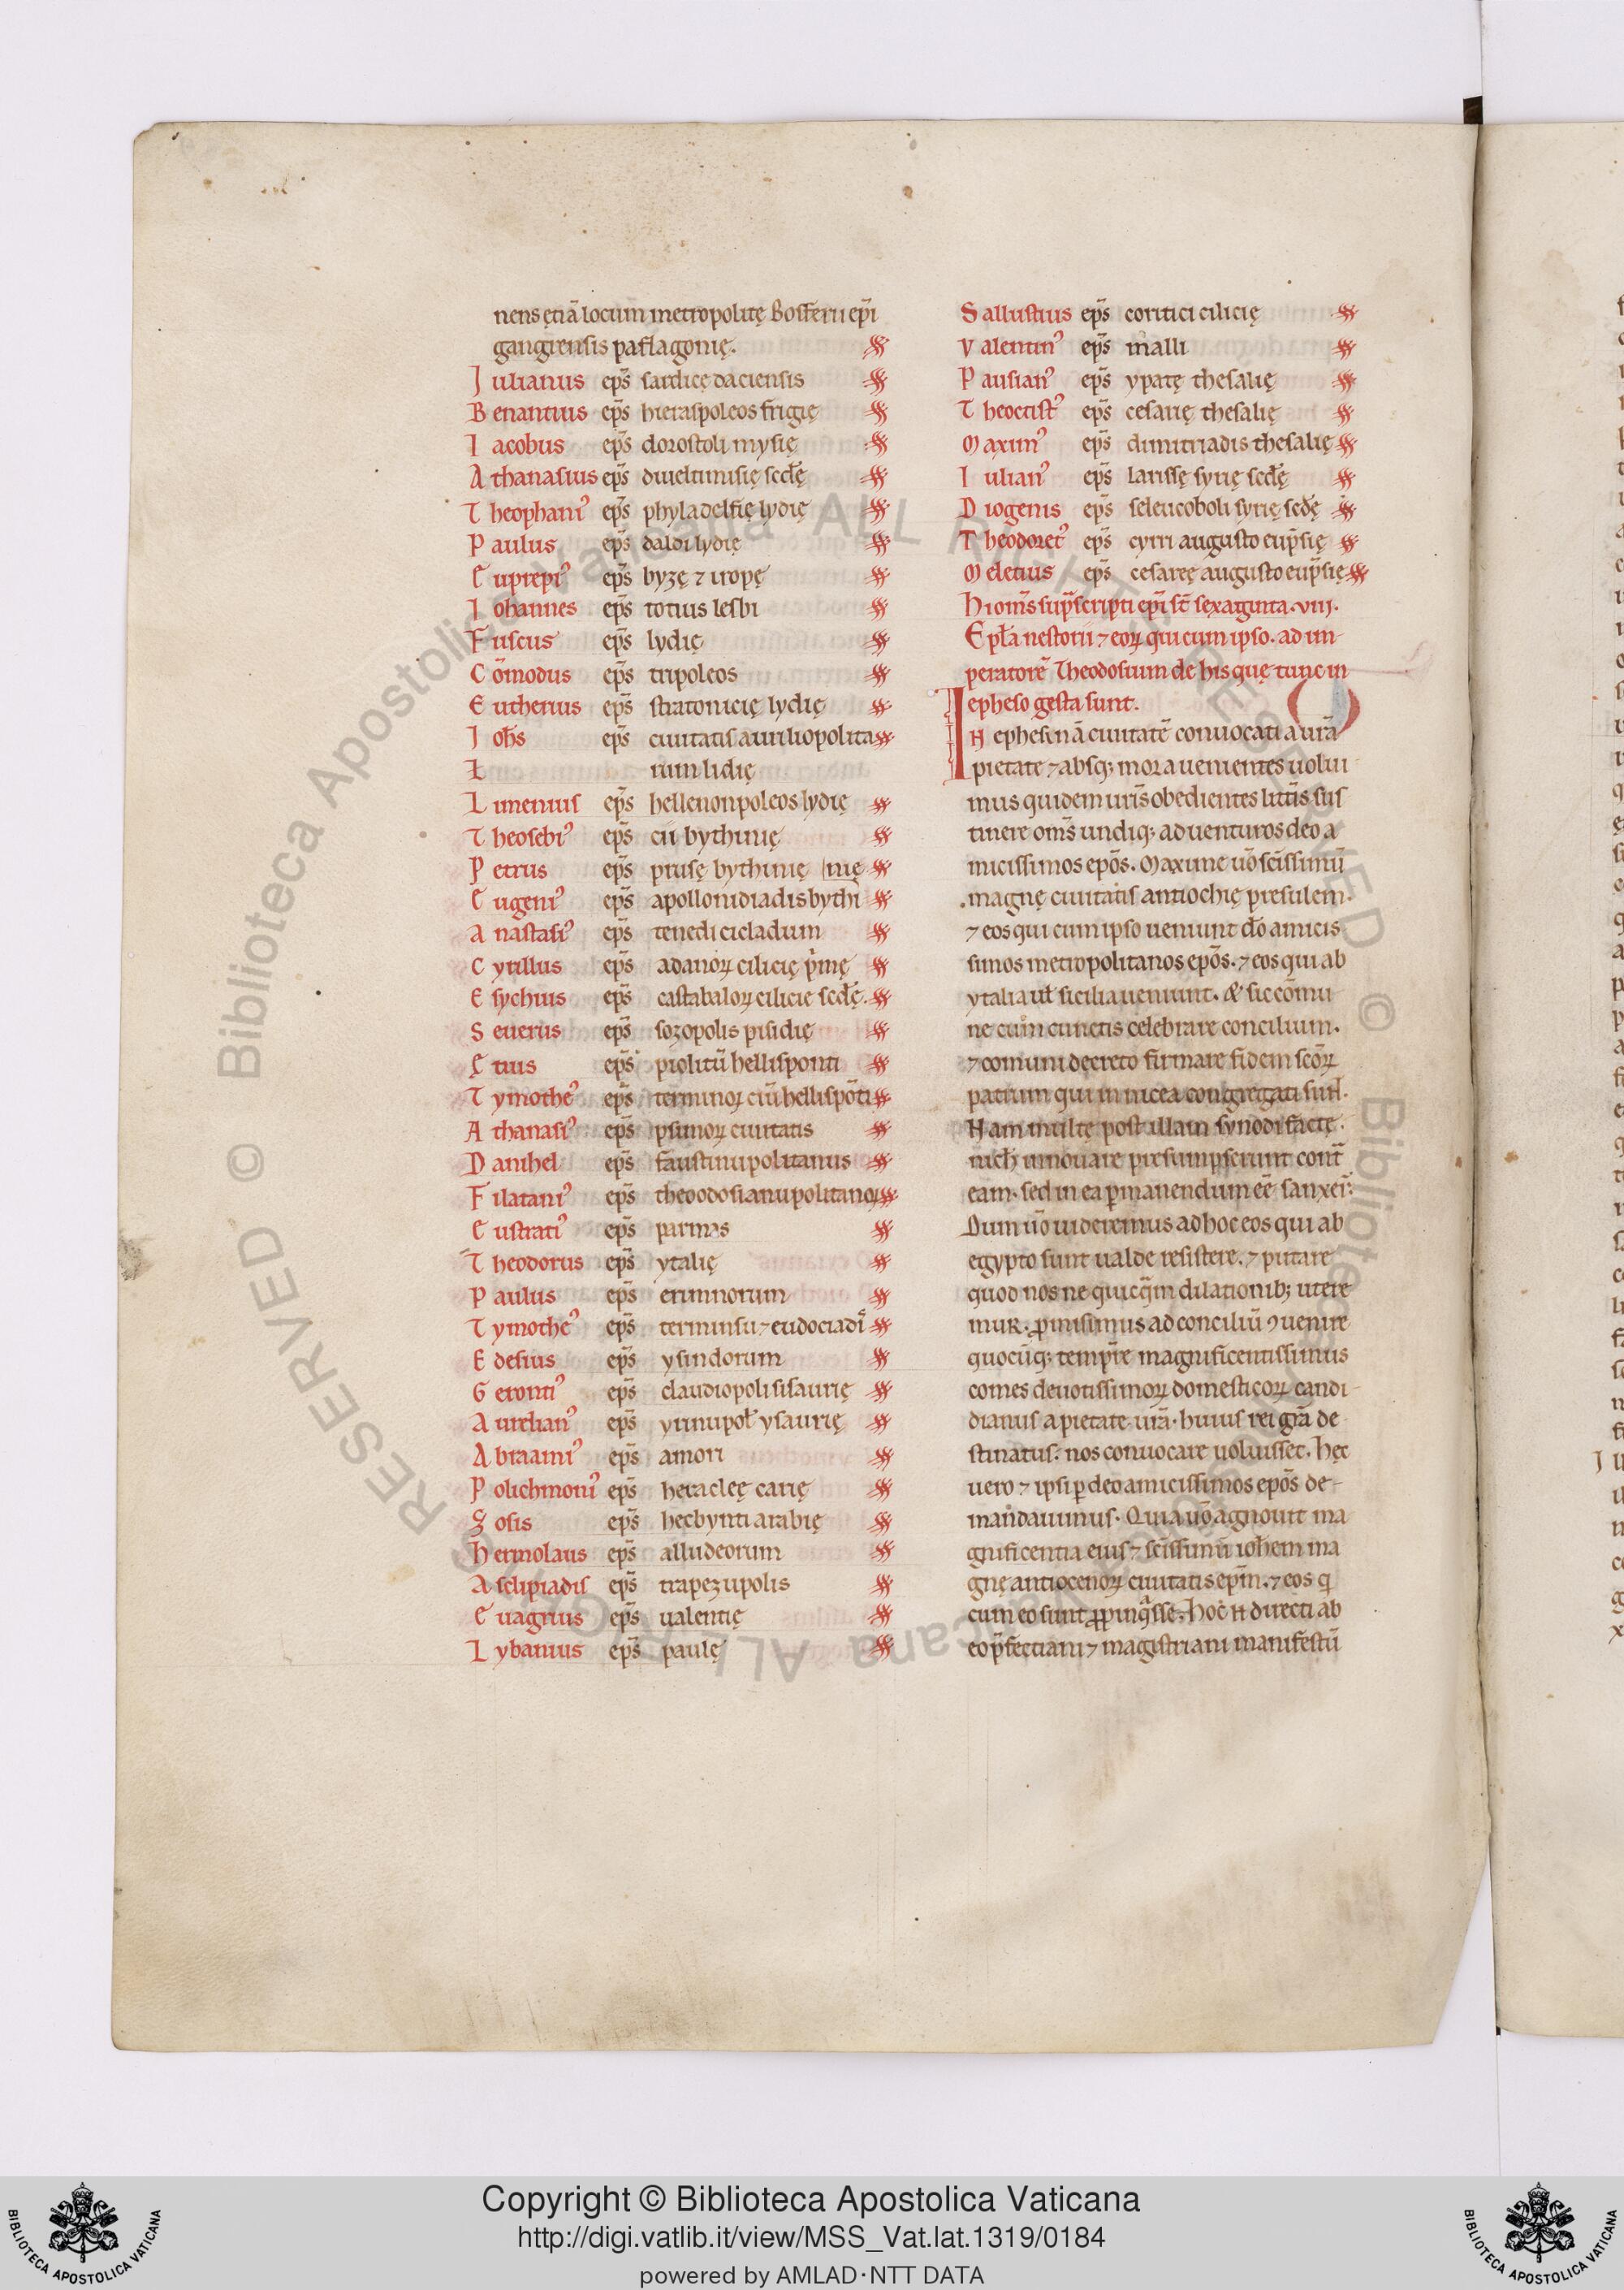 nens ętiã locum metropolitę Bosferii ep̃i
gangrensis paflagonię.
Julianus ep̃s sardicę daciensis
Benantius ep̃s hieraspoleos frigię
Iacobus ep̃s dorostoli mysię
Athanasius ep̃s diueltinisię scdę̃
Theophaniꝰ ep̃s phyladelfię lydię
Paulus ep̃s daldi lydię
Euprepiꝰ ep̃s byzę ⁊ iropę
Iohannes ep̃s totius lesbi
Fuscus ep̃s lydię
Cõmodus ep̃s tripoleos
Eutherius ep̃s stratonicię lydię
Joh̃s ep̃s ciuitatis auriliopolita
I rum lidię
Limenius ep̃s hellenonpoleos lydię
Theosebiꝰ ep̃s cii bythinię
Petrus ep̃s prusę bythinię nię
Eugeniꝰ ep̃s apollonidiadis bythi
Anastasiꝰ ep̃s tenedi cicladum
Cyrillus ep̃s adanoꝝ cilicię p̃mę
Esychius ep̃s castabaloꝝ cilicie scdę̃.
Seuerus ep̃s sozopolis pisidię
Ętius ep̃s piolitũ hellisponti
Tymotheꝰ ep̃s terminoꝝ ciũ hellispõti
Athanasiꝰ ep̃s psimoꝝ ciuitatis
Danihel ep̃s faustinupolitanus
Filataniꝰ ep̃s theodosianupolitanoꝝ
Eustratiꝰ ep̃s parnas
Theodorus ep̃s ytalię
Paulus ep̃s erimnorum
Tymotheꝰ ep̃s terminsu ⁊ eudociadĩ
Edesius ep̃s ysindorum
Gerontiꝰ ep̃s claudiopolis isaurię
Aurelianꝰ ep̃s yrinupol̃ ysaurię
Abraamiꝰ ep̃s amori
Polichroniꝰ ep̃s heracleę carię
Zosis ep̃s hecbynti arabię
Hermolaus ep̃s alludeorum
Asclipiadis ep̃s trapezupolis
Euagrius ep̃s ualentię
Lybanius ep̃s paulę
Sallustius ep̃s coritici cilicię
Valentinꝰ ep̃s malli
Pausianꝰ ep̃s ypatę thesalię
Theoctistꝰ ep̃s cesarię thesalię
Maximꝰ ep̃s dimitriadis thesalię
Iulianꝰ ep̃s larissę syrię scdę̃
Diogenis ep̃s seleucoboli syrię scdę̃
Theodoretꝰ ep̃s cyrri augusto eup̃się
Meletius ep̃s cesareę augusto eup̃się
Hi om̃s sup̃scripti ep̃i st̃ sexaginta.viij.
Epl̃a nestorii ⁊ eoꝝ qui cum ipso. ad im
peratorẽ Theodosium de his quę tunc in
epheso gesta sunt.
IN ephesinã ciuitatẽ conuocati a ur̃a
pietate ⁊ absq; mora uenientes uolui
mus quidem ur̃is obedientes litt̃is sus
tinere om̃s undiq; aduenturos deo a
micissimos ep̃os. Maxime ũo sc̃issimũ
magnę ciuitatis antiochię presulem.
⁊ eos qui cum ipso ueniunt dõ amicis
simos metropolitanos ep̃os. ⁊ eos qui ab
ytalia ul̃ sicilia ueniunt. & sic cõmu
ne cum cunctis celebrare concilium.
⁊ comuni decreto firmare fidem sc̃oꝝ
patrum qui in nicea congregati sunt.
Nam multę post illam synodi factę.
nich̃ innouare presumpserunt cont̃
eam. sed in ea ꝑmanendum eẽ sanxer̃.
Dum ũo uideremus ad hoc eos qui ab
egypto sunt ualde resistere. ⁊ putare
quod nos ne quicq̃m dilationib; utere
muR. ꝓmisimus ad conciliũ ꝯuenire
quocũq; temp̃re magnificentissimus
comes deuotissimoꝝ domesticoꝝ candi
dianus a pietate ur̃a. huius rei gr̃a de
stinatus. nos conuocare uoluisset. Hęc
uero ⁊ ipsi ꝑ deo amicissimos ep̃os de-
mandauimus. Quia ũo agnouit ma
gnificentia eius ⁊ sc̃issimũ ioh̃em ma
gnę antiocenoꝝ ciuitatis ep̃m. ⁊ eos q̃
cum eo sunt ꝓpinq̃sse. Hoc ñ directi ab
eo p̃fectiani ⁊ magistriani manifestũ
Copyright © Biblioteca Apostolica Vaticana
http://digi.vatlib.it/view/MSS_Vat.lat.1319/0184
powered by AMLAD·NTT DATA